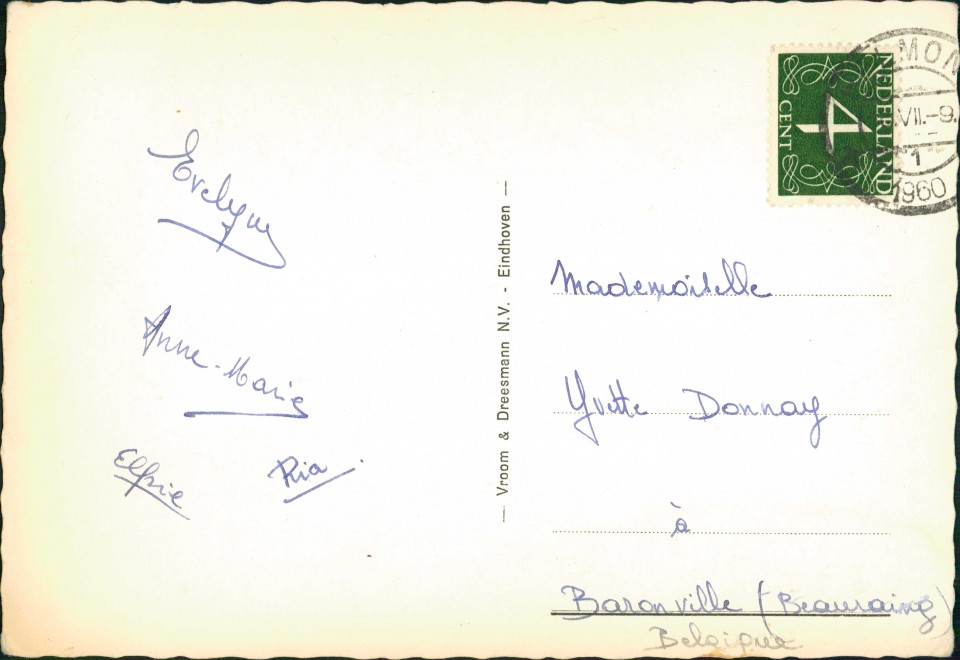 Evelyne
Anne-Marie
Elsie
Ria
— Vroom & Dreesmann N.V. - Eindhoven —
NEDERLAND
4
CENT
MON
VII.-9.
1
1960
Mademoiselle
Yvette Donnay
à
Baronville (Beauraing)
Belgique